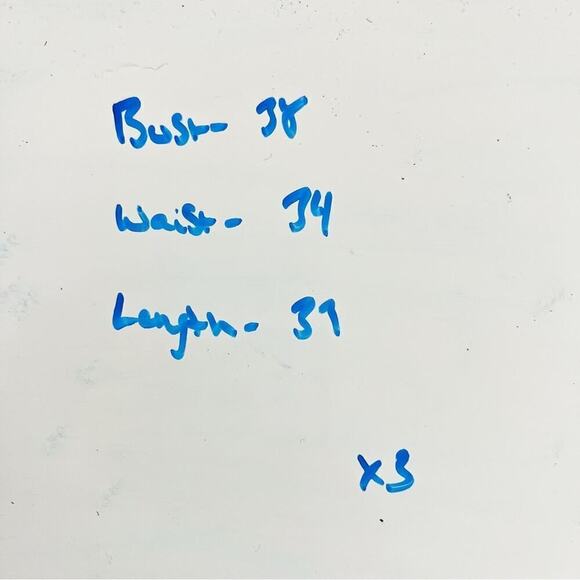 Bust- 38
Waist- 34
Length- 39
x3